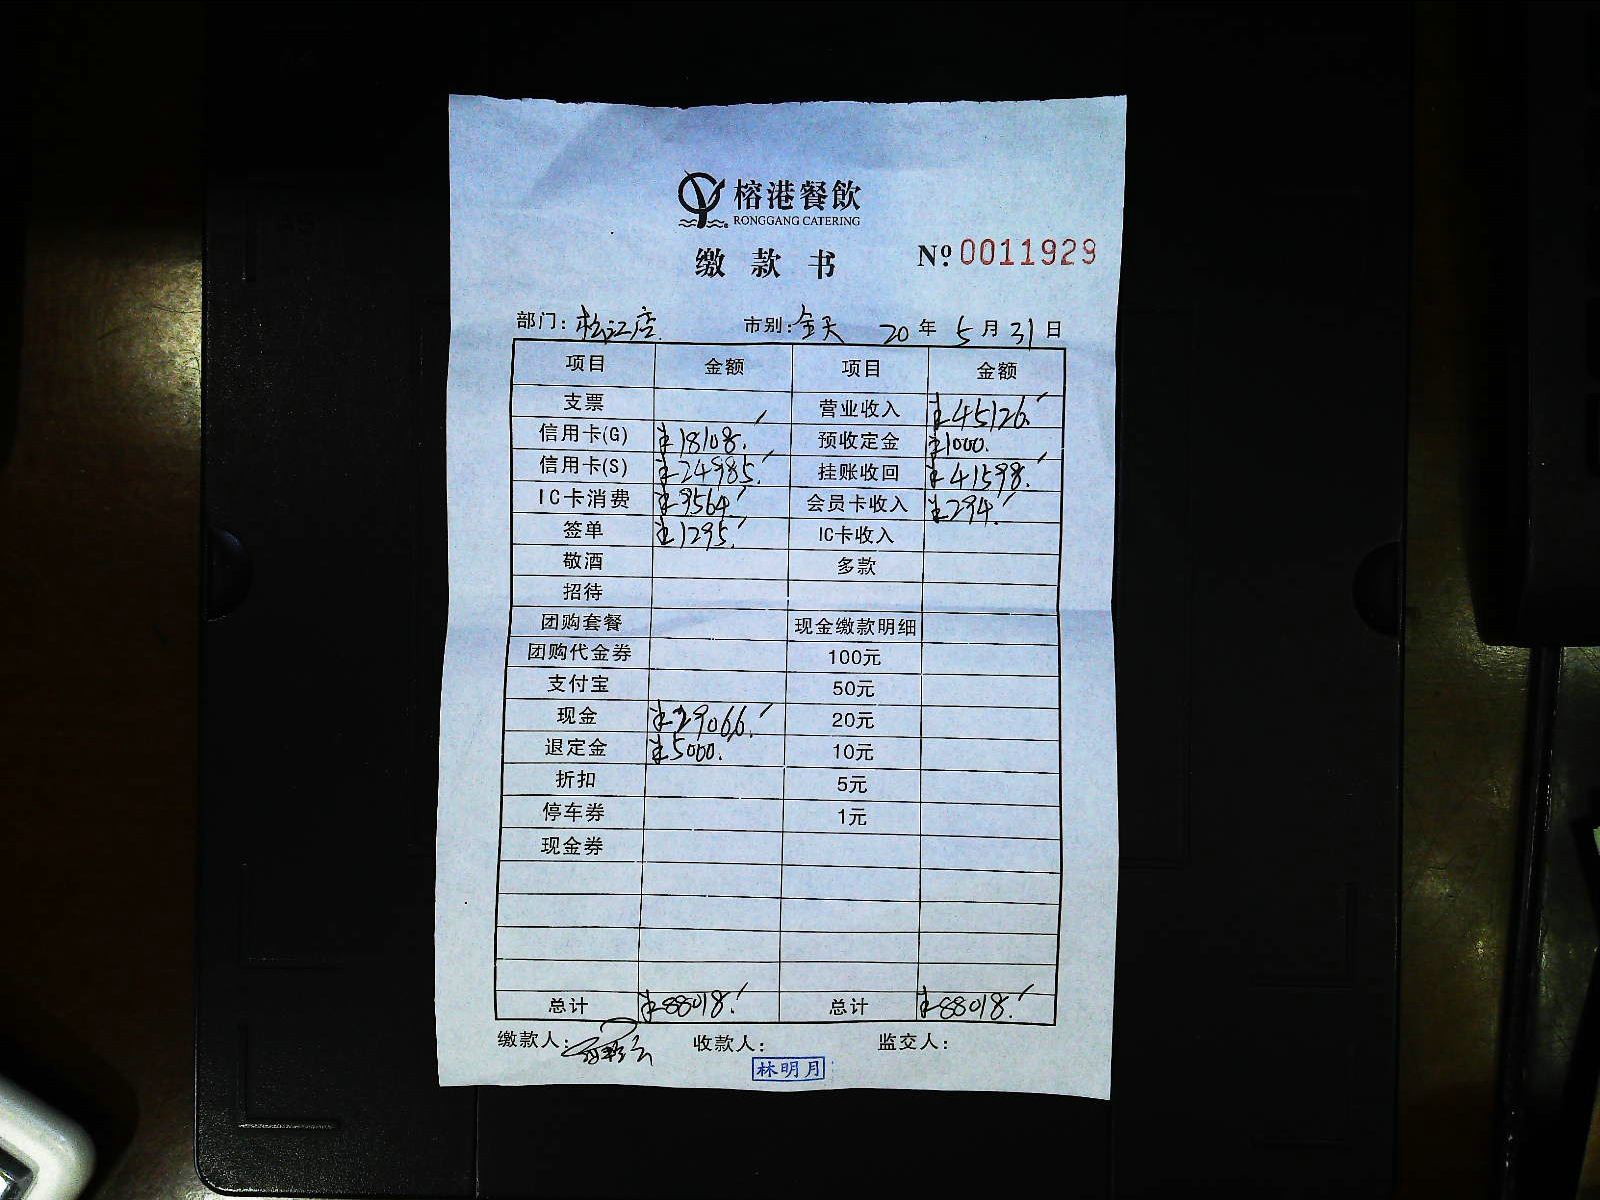 榕港餐飲
RONGGANG CATERING
缴款书 Nº 0011929
部门: 松江店 市别: 全天 20 年 5 月 31 日
项目 金额 项目 金额
支票 营业收入 ¥45126.
信用卡(G) ¥18108. 预收定金 ¥1000.
信用卡(S) ¥24985. 挂账收回 ¥41598.
IC卡消费 ¥9564 会员卡收入 ¥294.
签单 ¥1295. IC卡收入
敬酒 多款
招待
团购套餐 现金缴款明细
团购代金券 100元
支付宝 50元
现金 ¥29066. 20元
退定金 ¥5000. 10元
折扣 5元
停车券 1元
现金券
总计 ¥88018. 总计 ¥88018.
缴款人: 收款人: 监交人:
林明月